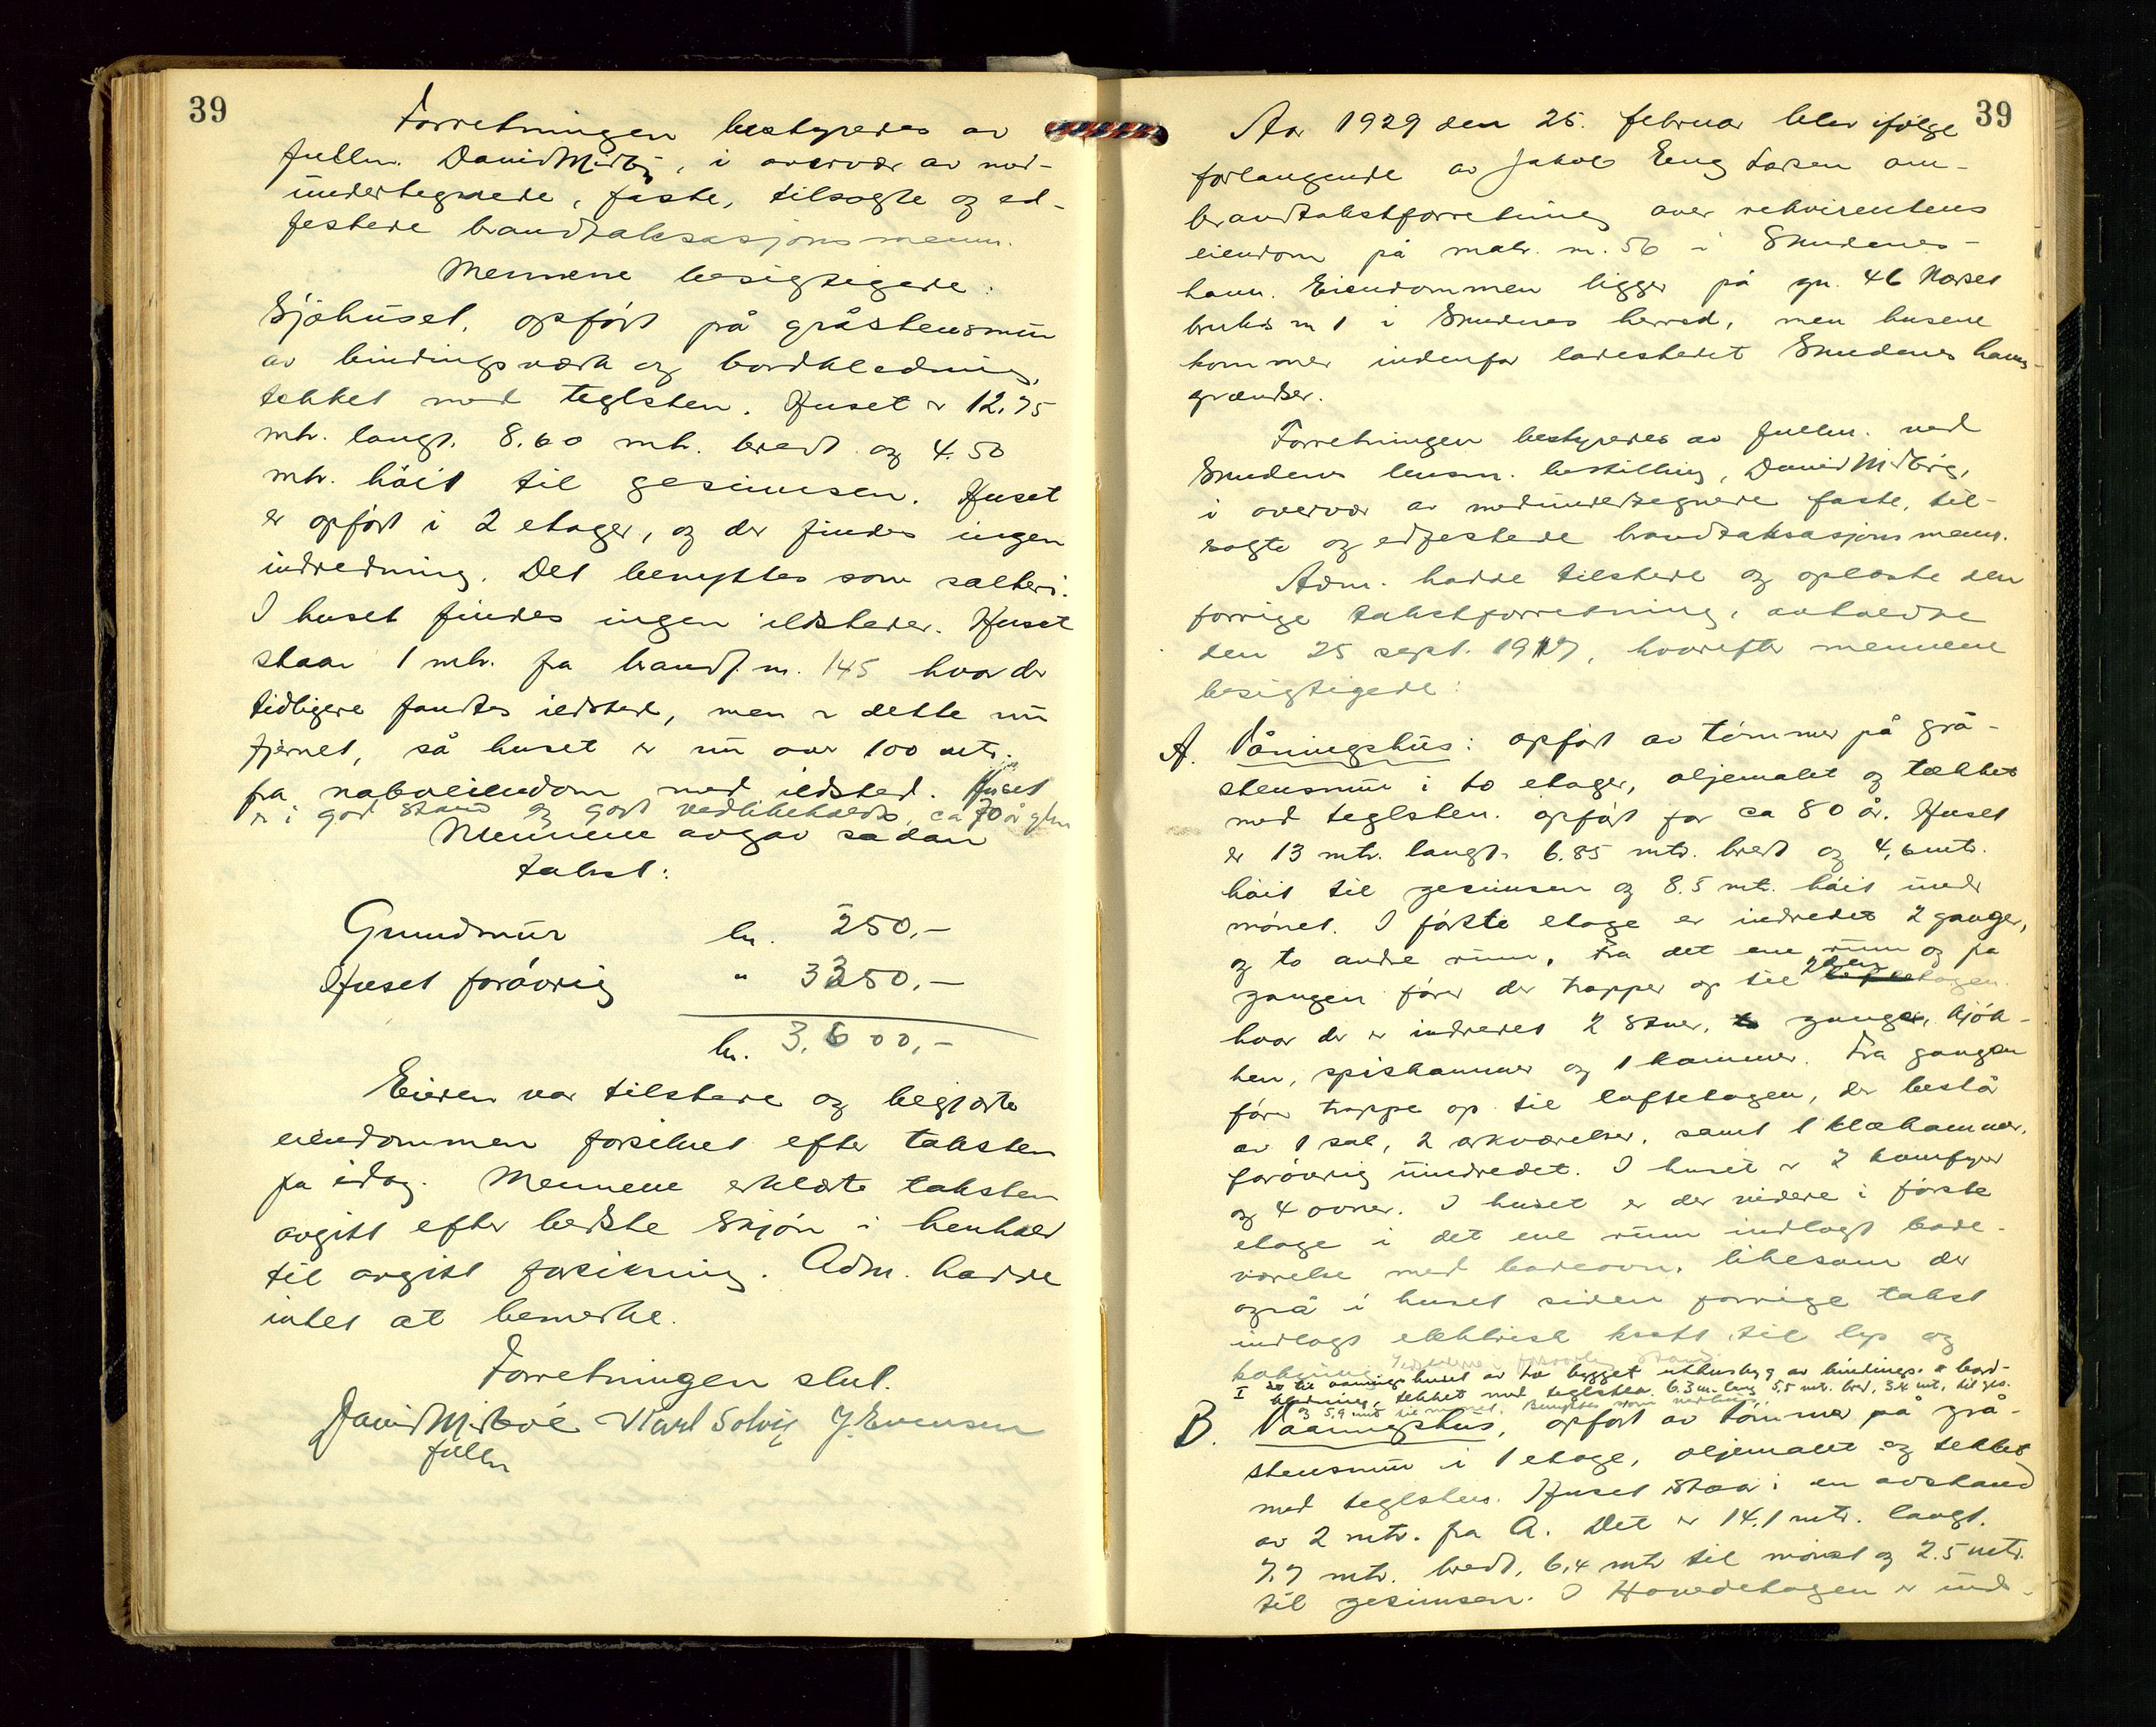 39
Forretningen bestyredes av
fullm. David Midbö, i overvær av med-
undertegnede, faste, tilsagte og ed-
festede brandtaksasjonsmenn.
Mennene besigtigede:
Sjøhuset, opført på gråstensmur
av bindingsværk og bordklædning,
tekket med teglsten. Huset er 12.75
mtr. langt. 8.60 mtr. bredt og 4.50
mtr. höit til gesimsen. Huset
er opført i 2 etager, og der findes ingen
indredning. Det benyttes som salteri.
I huset findes ingen ildsteder. Huset
staar 1 mtr. fra brandf. nr. 145 hvor der
tidligere fandtes ildsted, men er dette nu
fjernet, så huset er nu over 100 mtr.
fra naboeiendom med ildsted. Huset
er i god stand og godt vedlikeholdt, ca 70 år glm
Mennene avgav sådan
takst:
Grundmur kr. 250,-
Huset forövrig " 3350,-
kr. 3.600,-
Eieren var tilstede og begjærte
eiendommen forsikret efter taksten
fra idag. Mennene erklærte taksten
avgitt efter bedste skjön i henhold
til avgitt forsikring. Adm. hadde
intet at bemerke.
Forretningen slut.
David Midböe Karl Solvig J. Evensen
fullm
39
Aar 1929 den 25. februar blev ifölge
forlangende av Jakob Eeng Larsen om-
brandtakstforretning over rekvirentens
eiendom på matr. nr. 56 i Skudenes-
havn. Eiendommen ligger på gn. 46 Norset
bruks nr 1 i Skudenes herred, men husene
kommer indenfor ladestedet Skudenes havns
grændser.
Forretningen bestyredes av fullm. ved
Skudenes lensm. bestilling, David Midböe,
i overvær av medundertegnede faste, til-
sagte og edfestede brandtaksasjonsmenn.
Adm. hadde tilstede og oplæste den
forrige takstforretning, avholdte
den 25 sept. 1917, hvorefter mennene
besigtigede:
A. Våningshus: opført av tömmer på grå-
stensmur i to etager, oljemalet og tækket
med teglsten. opført for ca 80 år. Huset
er 13 mtr. langt, 6.85 mtr. bredt og 4,6 mtr.
höit til gesimsen og 8.5 mtr. höit under
mönet. I förste etage er indredet 2 ganger,
og to andre rum. Fra det ene rum og fra
gangen förer der trapper op til 2den etagen.
hvor der er indredet 2 stuer, gang, kjök-
ken, spiskammer og 1 kammer. Fra gangen
förer trappe op til loftetagen, der bestå
av 1 sal, 2 arkværelser, samt 1 klækammer.
forövrig uindredet. I huset er 2 komfyrer
og 4 ovner. I huset er der videre i förste
etage i det ene rum indlagt bade-
værelse med badeovn, likesom der
også i huset siden forrige takst
indlagt elektrisk kraft til lys og
kokning. Ildstederne i forsvarlig stand.
I til vaaningshuset av tre bygget uthusbyg av bindings. & bord-
klædning, tekket med teglsten. 6.3 m. lang 5,5 mtr. bred, 3.4 mt. til ges.
og 5,9 mtr til mönet. Benyttes som vedhus.
B. Vaaningshus, opført av tömmer på grå-
stensmur i 1 etage, oljemalet og tekket
med teglsten. Huset staar i en avstand
av 2 mtr. fra A. Det er 14.1 mtr. langt.
7.7 mtr. bredt, 6.4 mtr til mönet og 2.5 mtr.
til gesimsen. I Hovedetagen er ind-